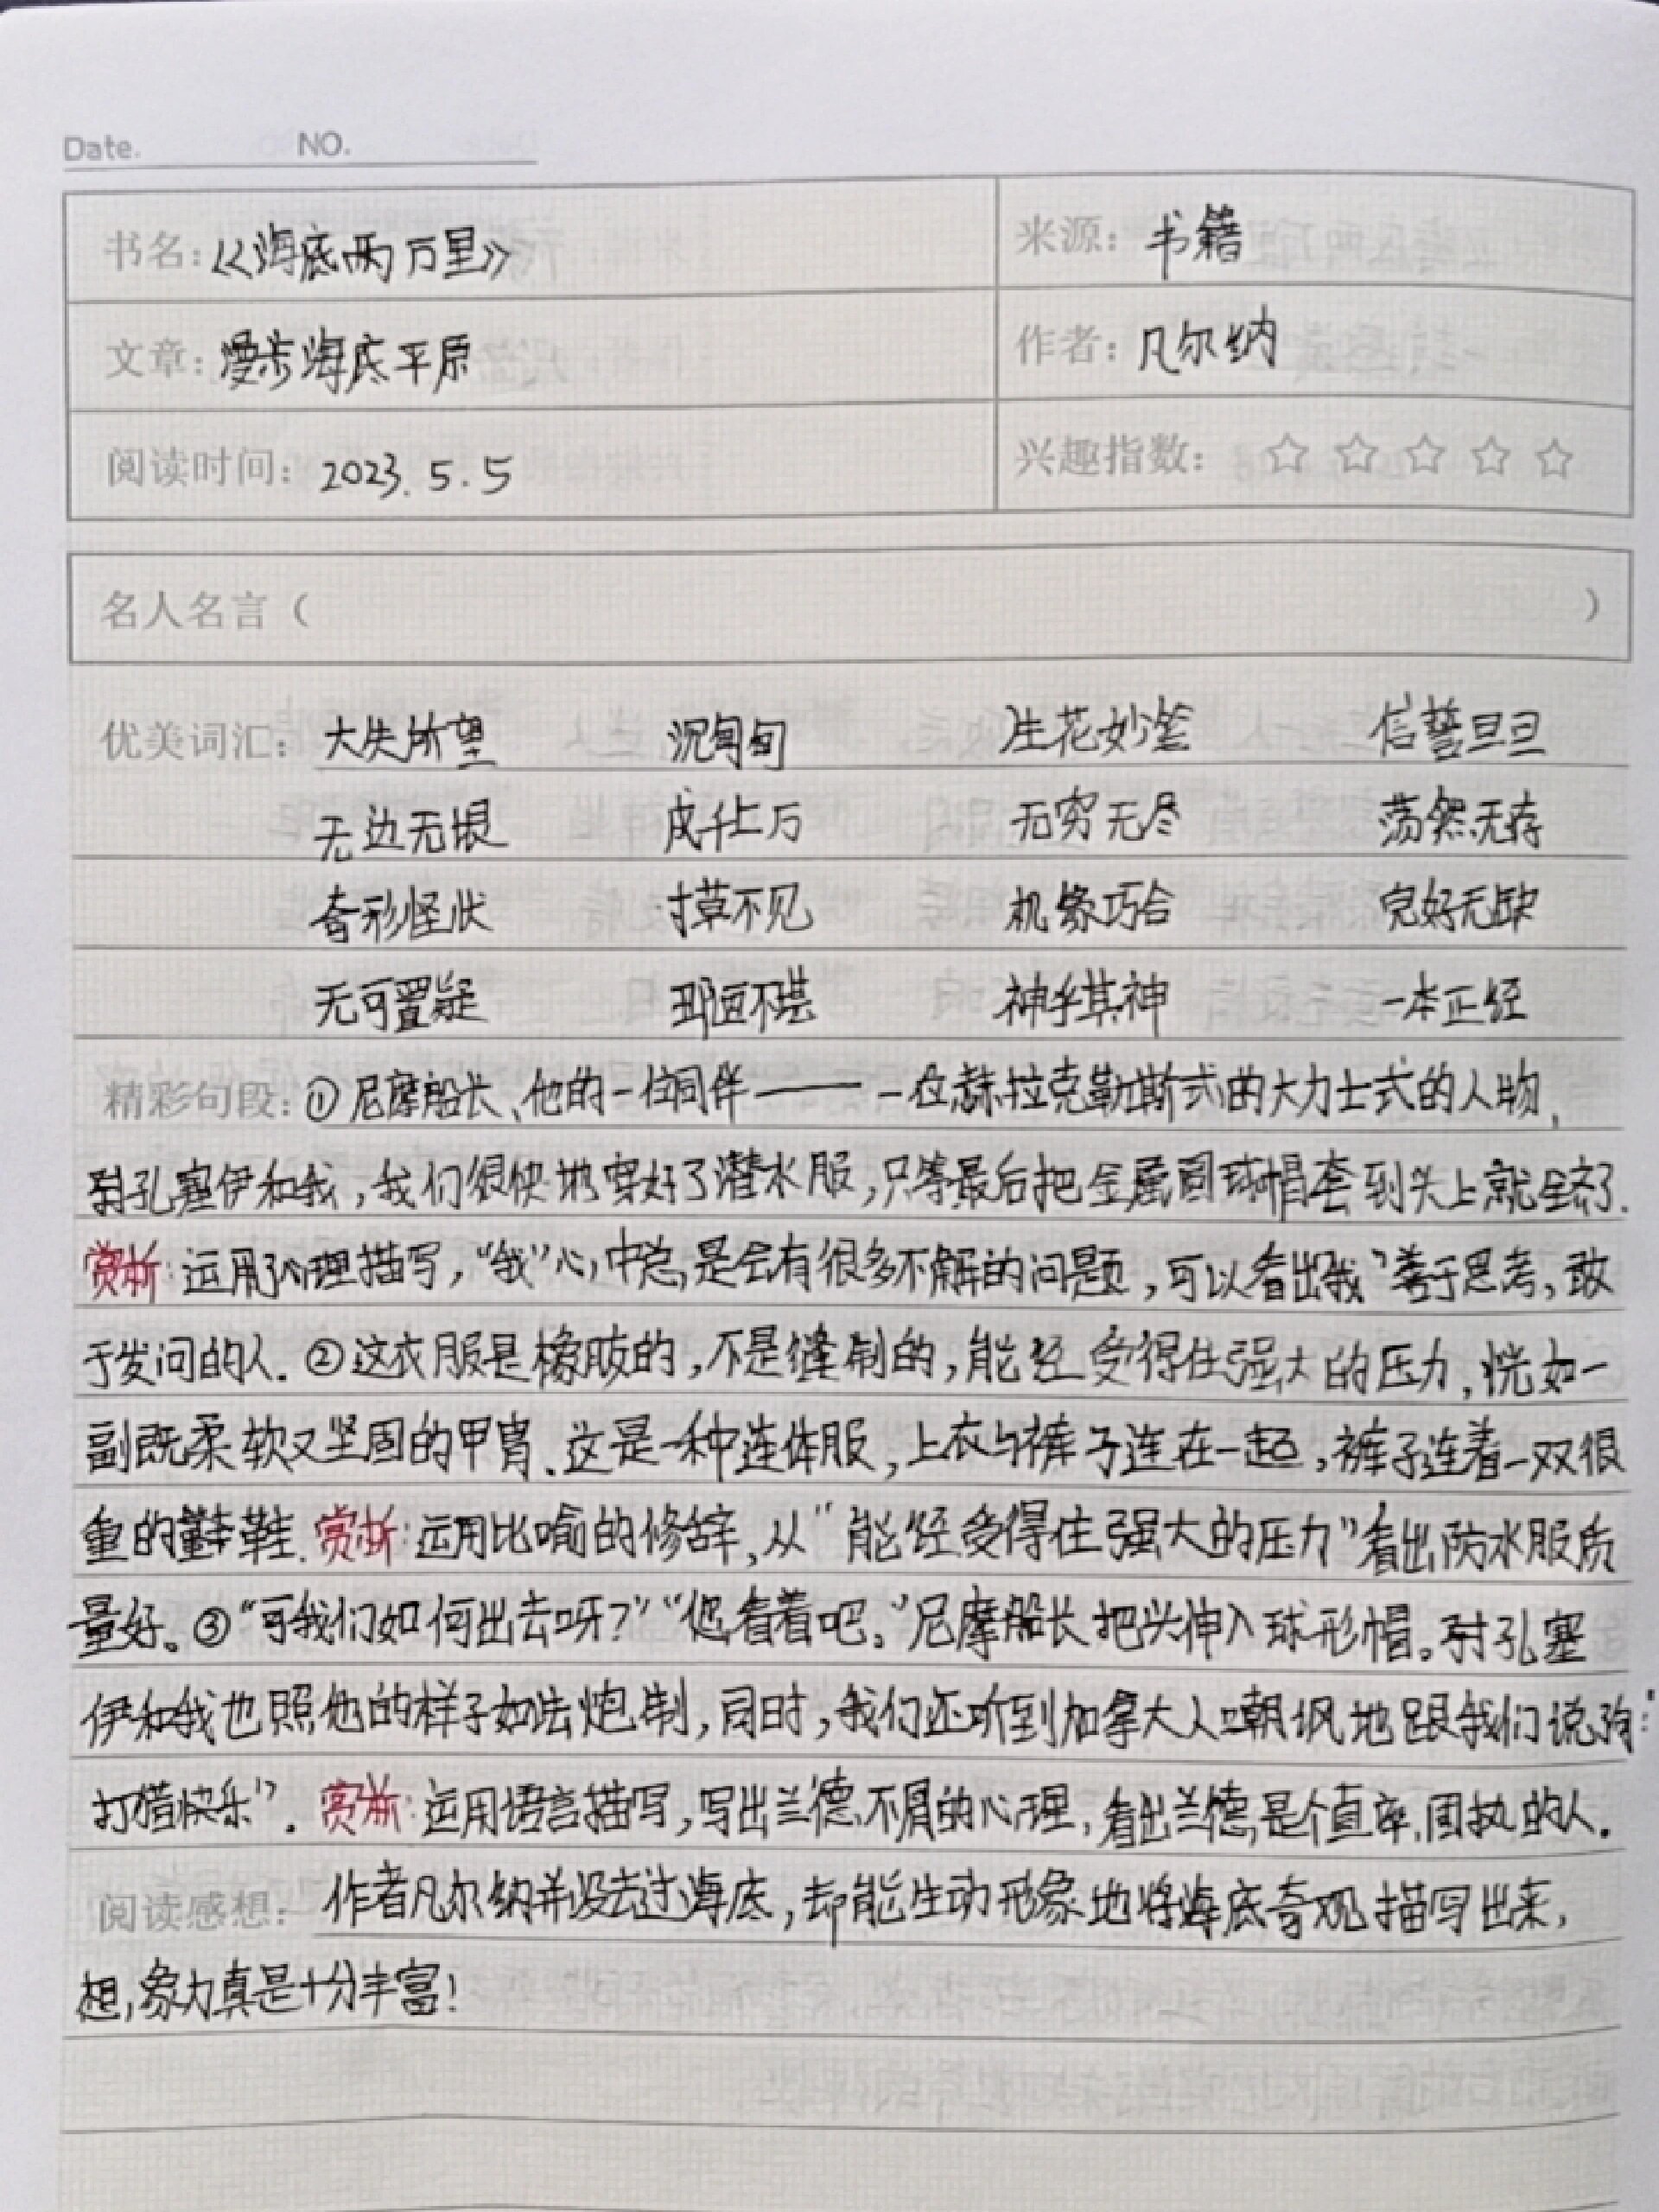 Date. NO.
书名：《海底两万里》 来源：书籍
文章：漫步海底平原 作者：凡尔纳
阅读时间：2023.5.5 兴趣指数：☆ ☆ ☆ ☆ ☆
名人名言（ ）
优美词汇：大失所望 沉甸甸 生花妙笔 信誓旦旦
无边无垠 成千上万 无穷无尽 荡然无存
奇形怪状 寸草不见 机缘巧合 完好无缺
无可置疑 神乎其神 一本正经
精彩句段：①尼摩船长、他的一位同伴——一位赫拉克勒斯式的大力士式的人物，
孔塞伊和我，我们很快地穿好了潜水服，只等最后把金属圆球帽套到头上就全齐了.
赏析：运用了心理描写，“我”心中总是会有很多不解的问题，可以看出我”善于思考，敢
于发问的人.②这衣服是橡胶的，不是缝制的，能经受得住强大的压力，恍如一
副既柔软又坚固的甲胄.这是一种连体服，上衣与裤子连在一起，裤子连着一双很
重的鞋.赏析：运用比喻的修辞，从“能经受得住强大的压力”看出防水服质
量好。③“可我们如何出去呀？”“您看着吧。”尼摩船长把头伸入球形帽。孔塞
伊和我也照他的样子如法炮制，同时，我们还听到加拿大人嘲讽地跟我们说：“
打猎快乐”.赏析：运用语言描写，写出兰德不屑的心理，看出兰德是个直率，固执的人.
阅读感想：作者凡尔纳并没去过海底，却能生动形象地将海底奇观描写出来，
想象力真是十分丰富！